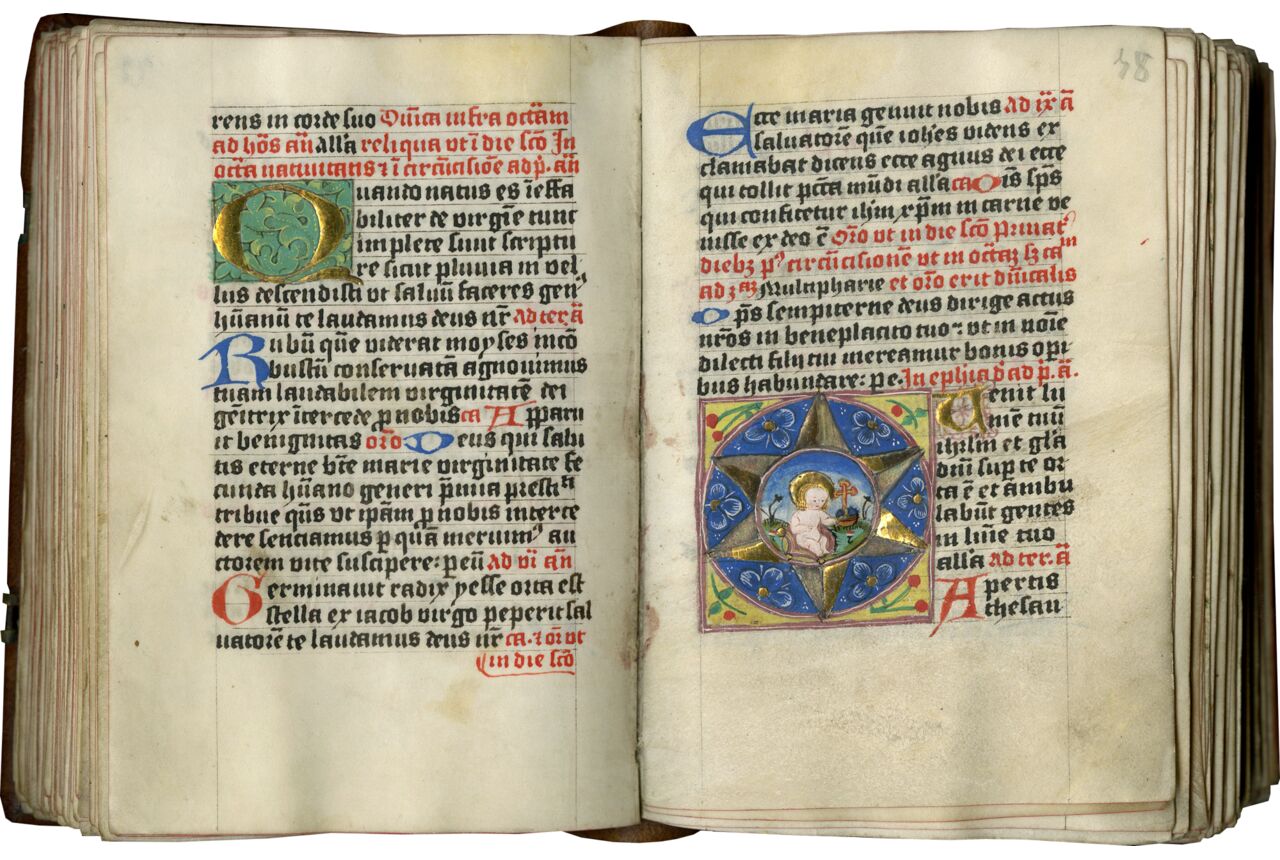 rens in corde suo Dñica infra octãm
ad hõs añ All'a reliqua vt ĩ die scõ In
octã natiuitatis ⁊ ĩ circũcisiõe ad p̃. añ
Quando natus es ĩeffa
biliter de virgĩe tunc
implete sunt scriptu
re sicut pluuia in vel
lus descendisti vt saluũ faceres gen9
hũanũ te laudamus deus nr̃ Ad ter. ã
Rubũ que viderat moyses incõ
bustũ conseruatã agnouimus
tuam laudabilem virginitatẽ dei
gẽitrix ĩtercede p nobis ca Apparu
it benignitas orõ Deus qui salu
tis eterne bt̃e marie virginitate fe
cunda hũano generi p̃mia prestitᵃ
tribue q̃s vt ip̃am p nobis interce
dere senciamus p quã meruim9 au
ctorem vite suscipere: p eũ Ad vi añ
Germinauit radix yesse orta est
stella ex iacob virgo peperit sal
uatorẽ te laudamus deus nr̃ ca. ⁊ or̃ vt
in die scõ
48
Ecce maria genuit nobis Ad ix ã
saluatorẽ quẽ ioh̃es videns ex
clamabat dicens ecce agnus dei ecce
qui tollit pc̃ta mũdi all'a ca Oĩs sp̃s
qui confitetur ih̃m xp̃m in carne ve
nisse ex deo ẽ Orõ vt in die scõ Priuat'
diebz p9 circũcisionẽ vt in octãs hz caᵐ
ad 3as Multipharie et orõ erit dñicalis
Op̃s sempiterne deus dirige actus
nr̃os in beneplacito tuo: vt in noĩe
dilecti filij tui mereamur bonis opi
bus habundare: pe. In ephia p̃ ad p. ã.
Uenit lu
mẽ tuũ
ihrl'm et gl'a
dñi sup te or
ta ẽ et ambu
labũt gentes
in luĩe tuo
all'a ad ter. ã
Apertis
thesau